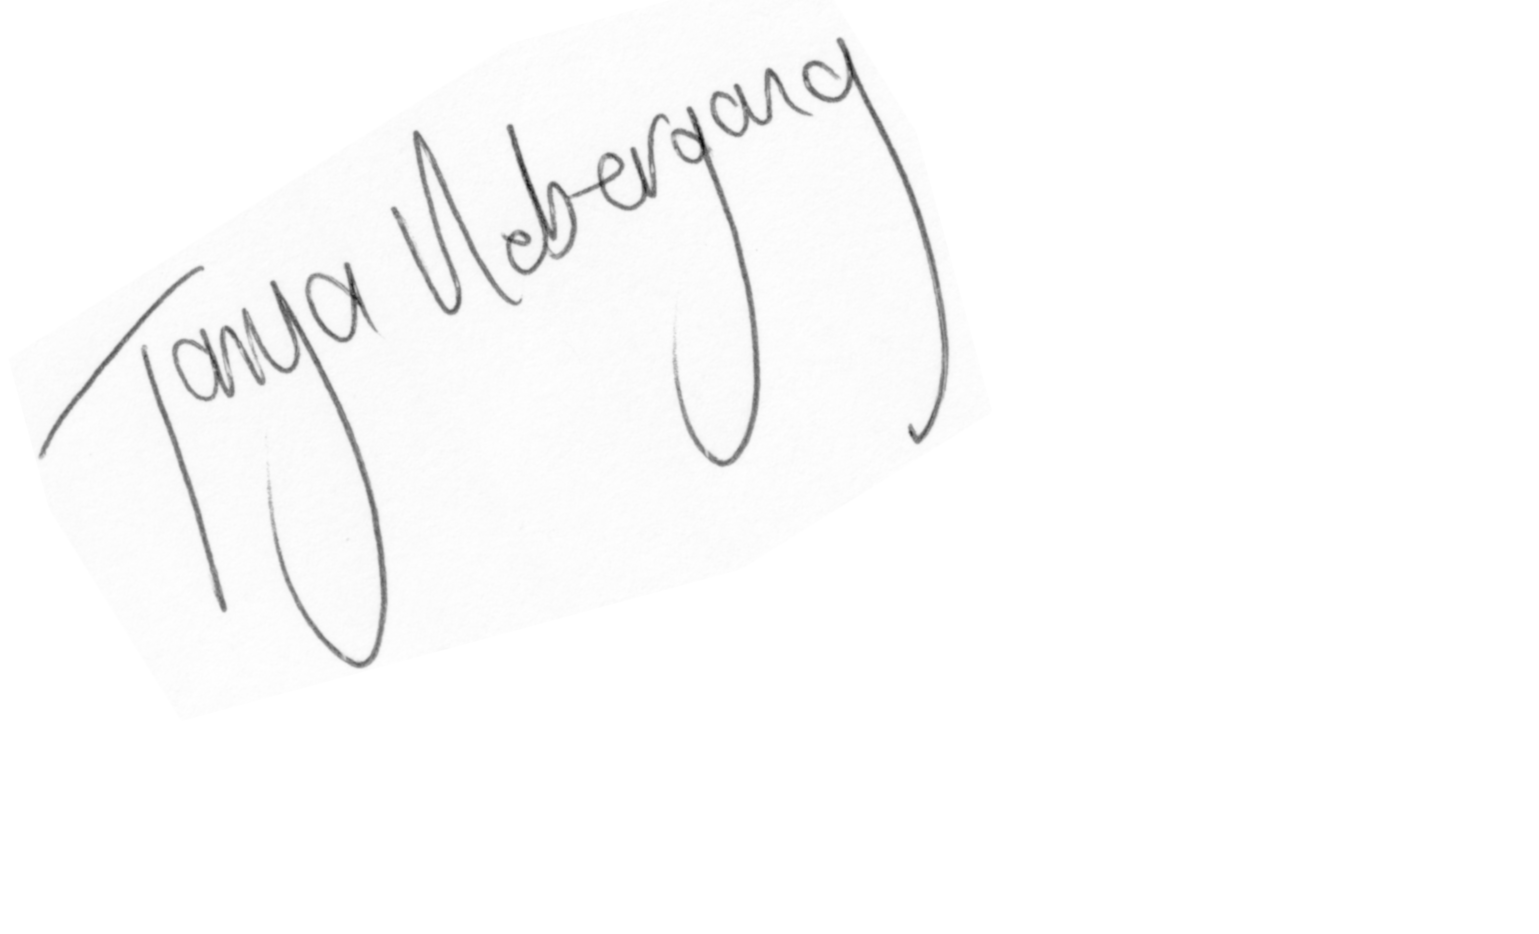 Tanya Nebergang